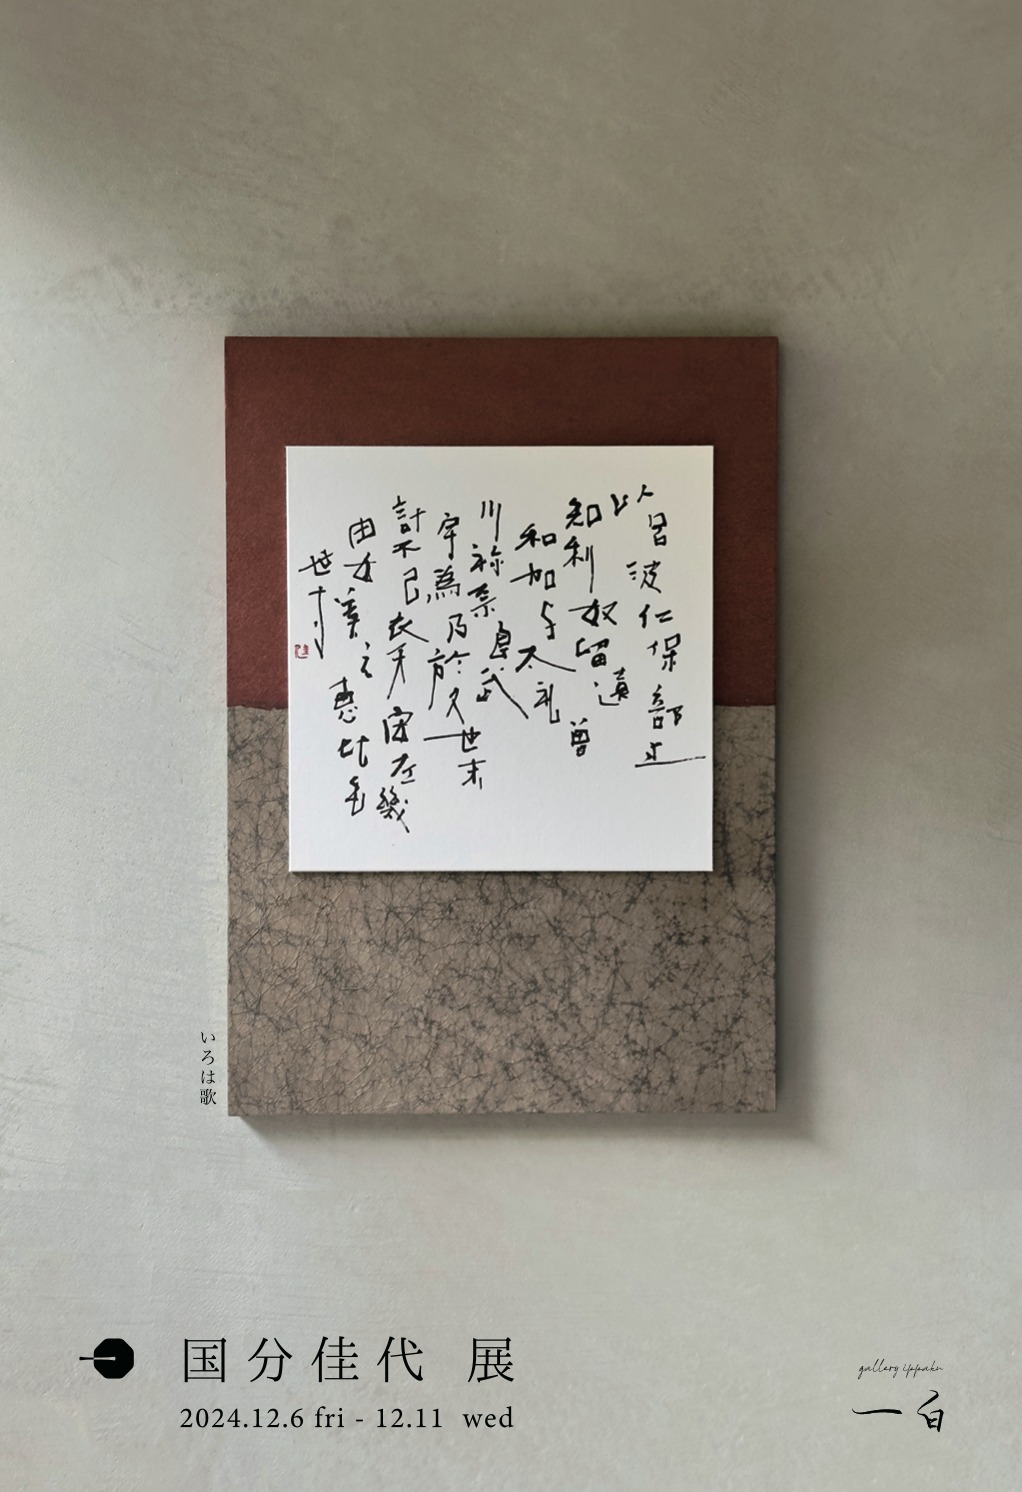 以呂波仁保部止
知利奴留遠
和加与太礼曽
川祢奈良武
宇為乃於久也末
計不己衣天安左幾
由女美之恵比毛
世寸
いろは歌
国分佳代 展
2024.12.6 fri - 12.11 wed
gallery ippaku
一白